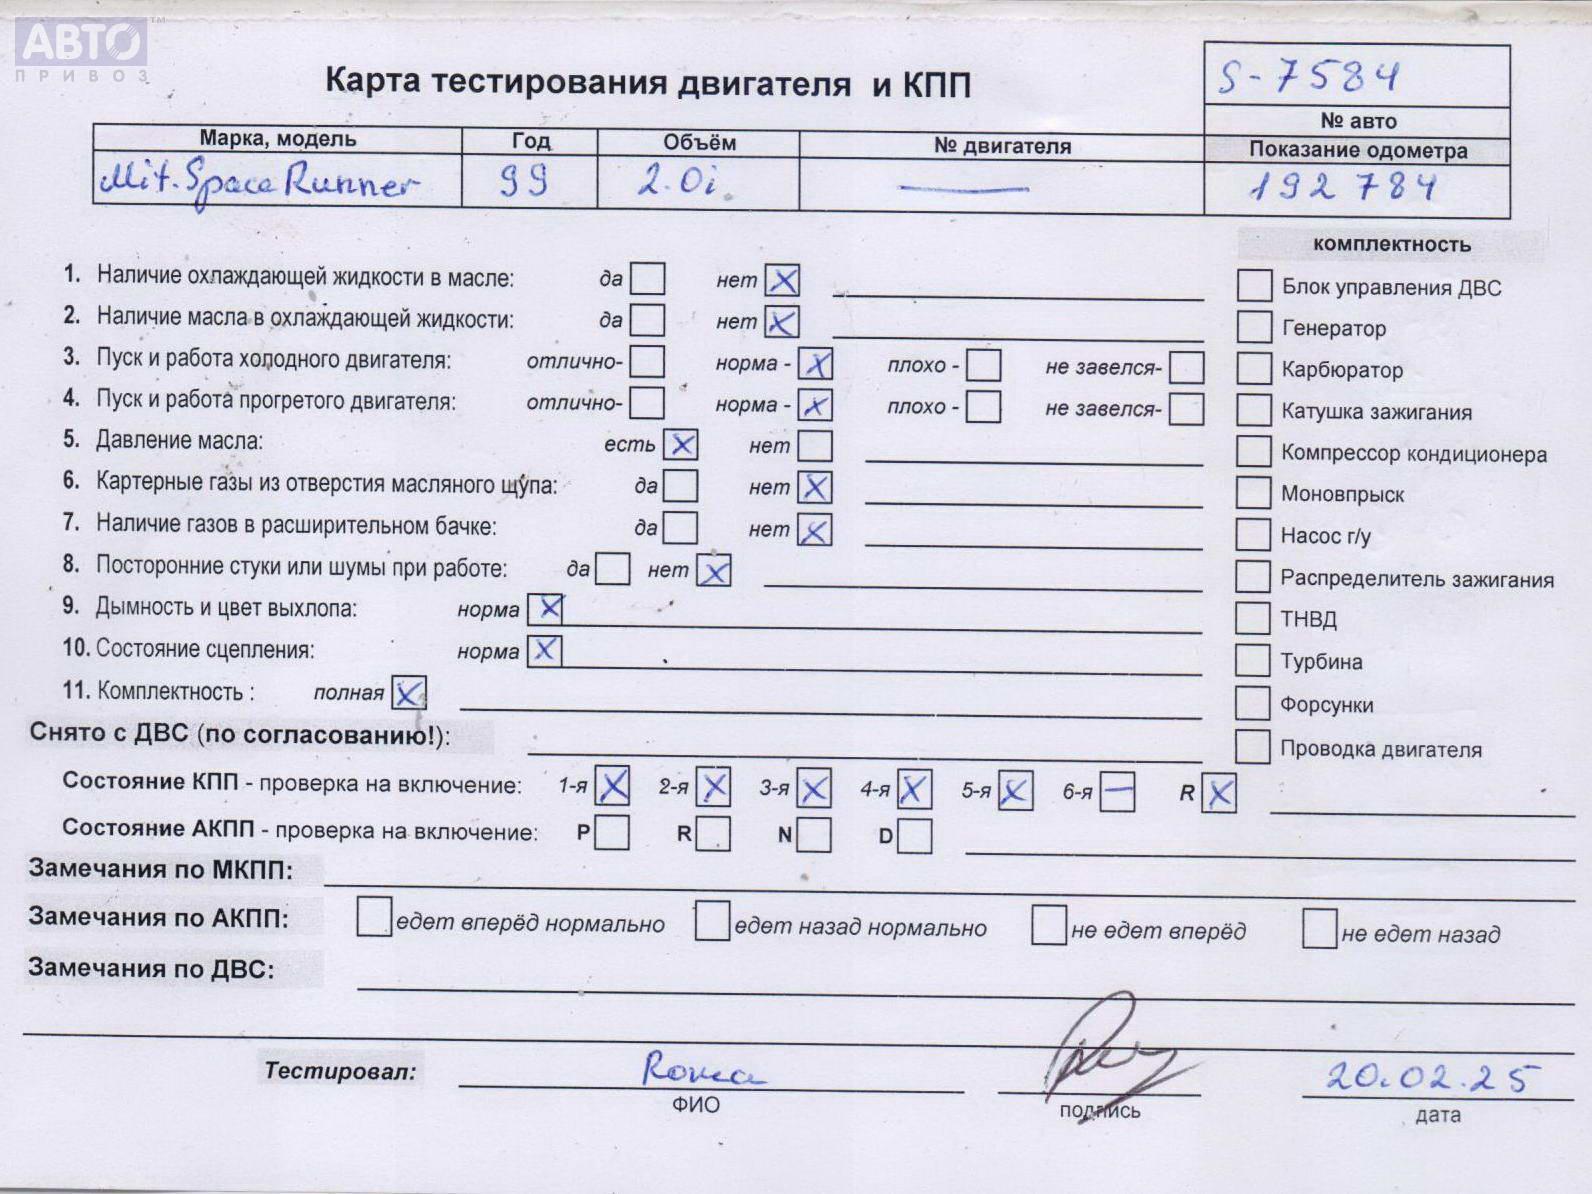 АВТО™
ПРИВОЗ
Карта тестирования двигателя и КПП
S-7584
№ авто
Марка, модель Год Объём № двигателя Показание одометра
Mit. Space Runner 99 2.0i. — 192 784
комплектность
1. Наличие охлаждающей жидкости в масле: да нет X
2. Наличие масла в охлаждающей жидкости: да нет X
3. Пуск и работа холодного двигателя: отлично- норма - X плохо - не завелся-
4. Пуск и работа прогретого двигателя: отлично- норма - X плохо - не завелся-
5. Давление масла: есть X нет
6. Картерные газы из отверстия масляного щупа: да нет X
7. Наличие газов в расширительном бачке: да нет X
8. Посторонние стуки или шумы при работе: да нет X
9. Дымность и цвет выхлопа: норма X
10. Состояние сцепления: норма X
11. Комплектность : полная X
Блок управления ДВС
Генератор
Карбюратор
Катушка зажигания
Компрессор кондиционера
Моновпрыск
Насос г/у
Распределитель зажигания
ТНВД
Турбина
Форсунки
Проводка двигателя
Снято с ДВС (по согласованию!):
Состояние КПП - проверка на включение: 1-я X 2-я X 3-я X 4-я X 5-я X 6-я — R X
Состояние АКПП - проверка на включение: P R N D
Замечания по МКПП:
Замечания по АКПП: едет вперёд нормально едет назад нормально не едет вперёд не едет назад
Замечания по ДВС:
Тестировал: Roma 20.02.25
ФИО подпись дата